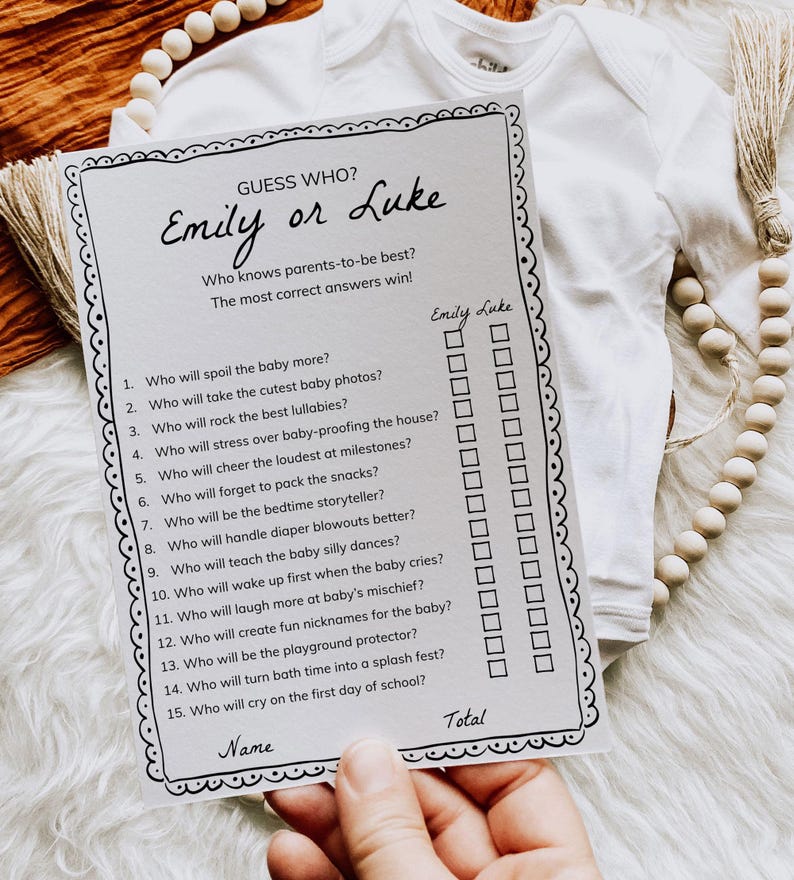 GUESS WHO?
Emily or Luke
Who knows parents-to-be best?
The most correct answers win!
Emily Luke
1. Who will spoil the baby more?
2. Who will take the cutest baby photos?
3. Who will rock the best lullabies?
4. Who will stress over baby-proofing the house?
5. Who will cheer the loudest at milestones?
6. Who will forget to pack the snacks?
7. Who will be the bedtime storyteller?
8. Who will handle diaper blowouts better?
9. Who will teach the baby silly dances?
10. Who will wake up first when the baby cries?
11. Who will laugh more at baby's mischief?
12. Who will create fun nicknames for the baby?
13. Who will be the playground protector?
14. Who will turn bath time into a splash fest?
15. Who will cry on the first day of school?
Name
Total